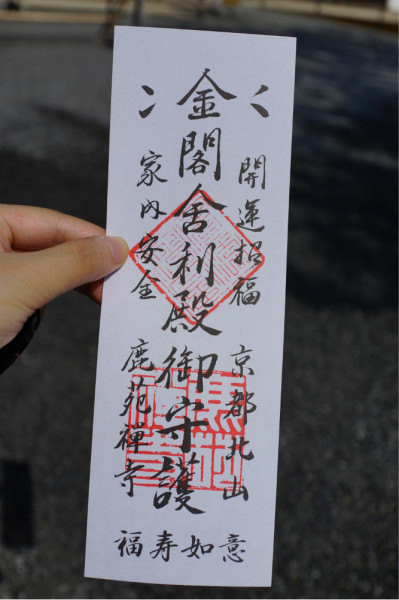 開運招福
京都北山
金閣舍利殿御守護
家内安全
鹿苑禅寺
福寿如意